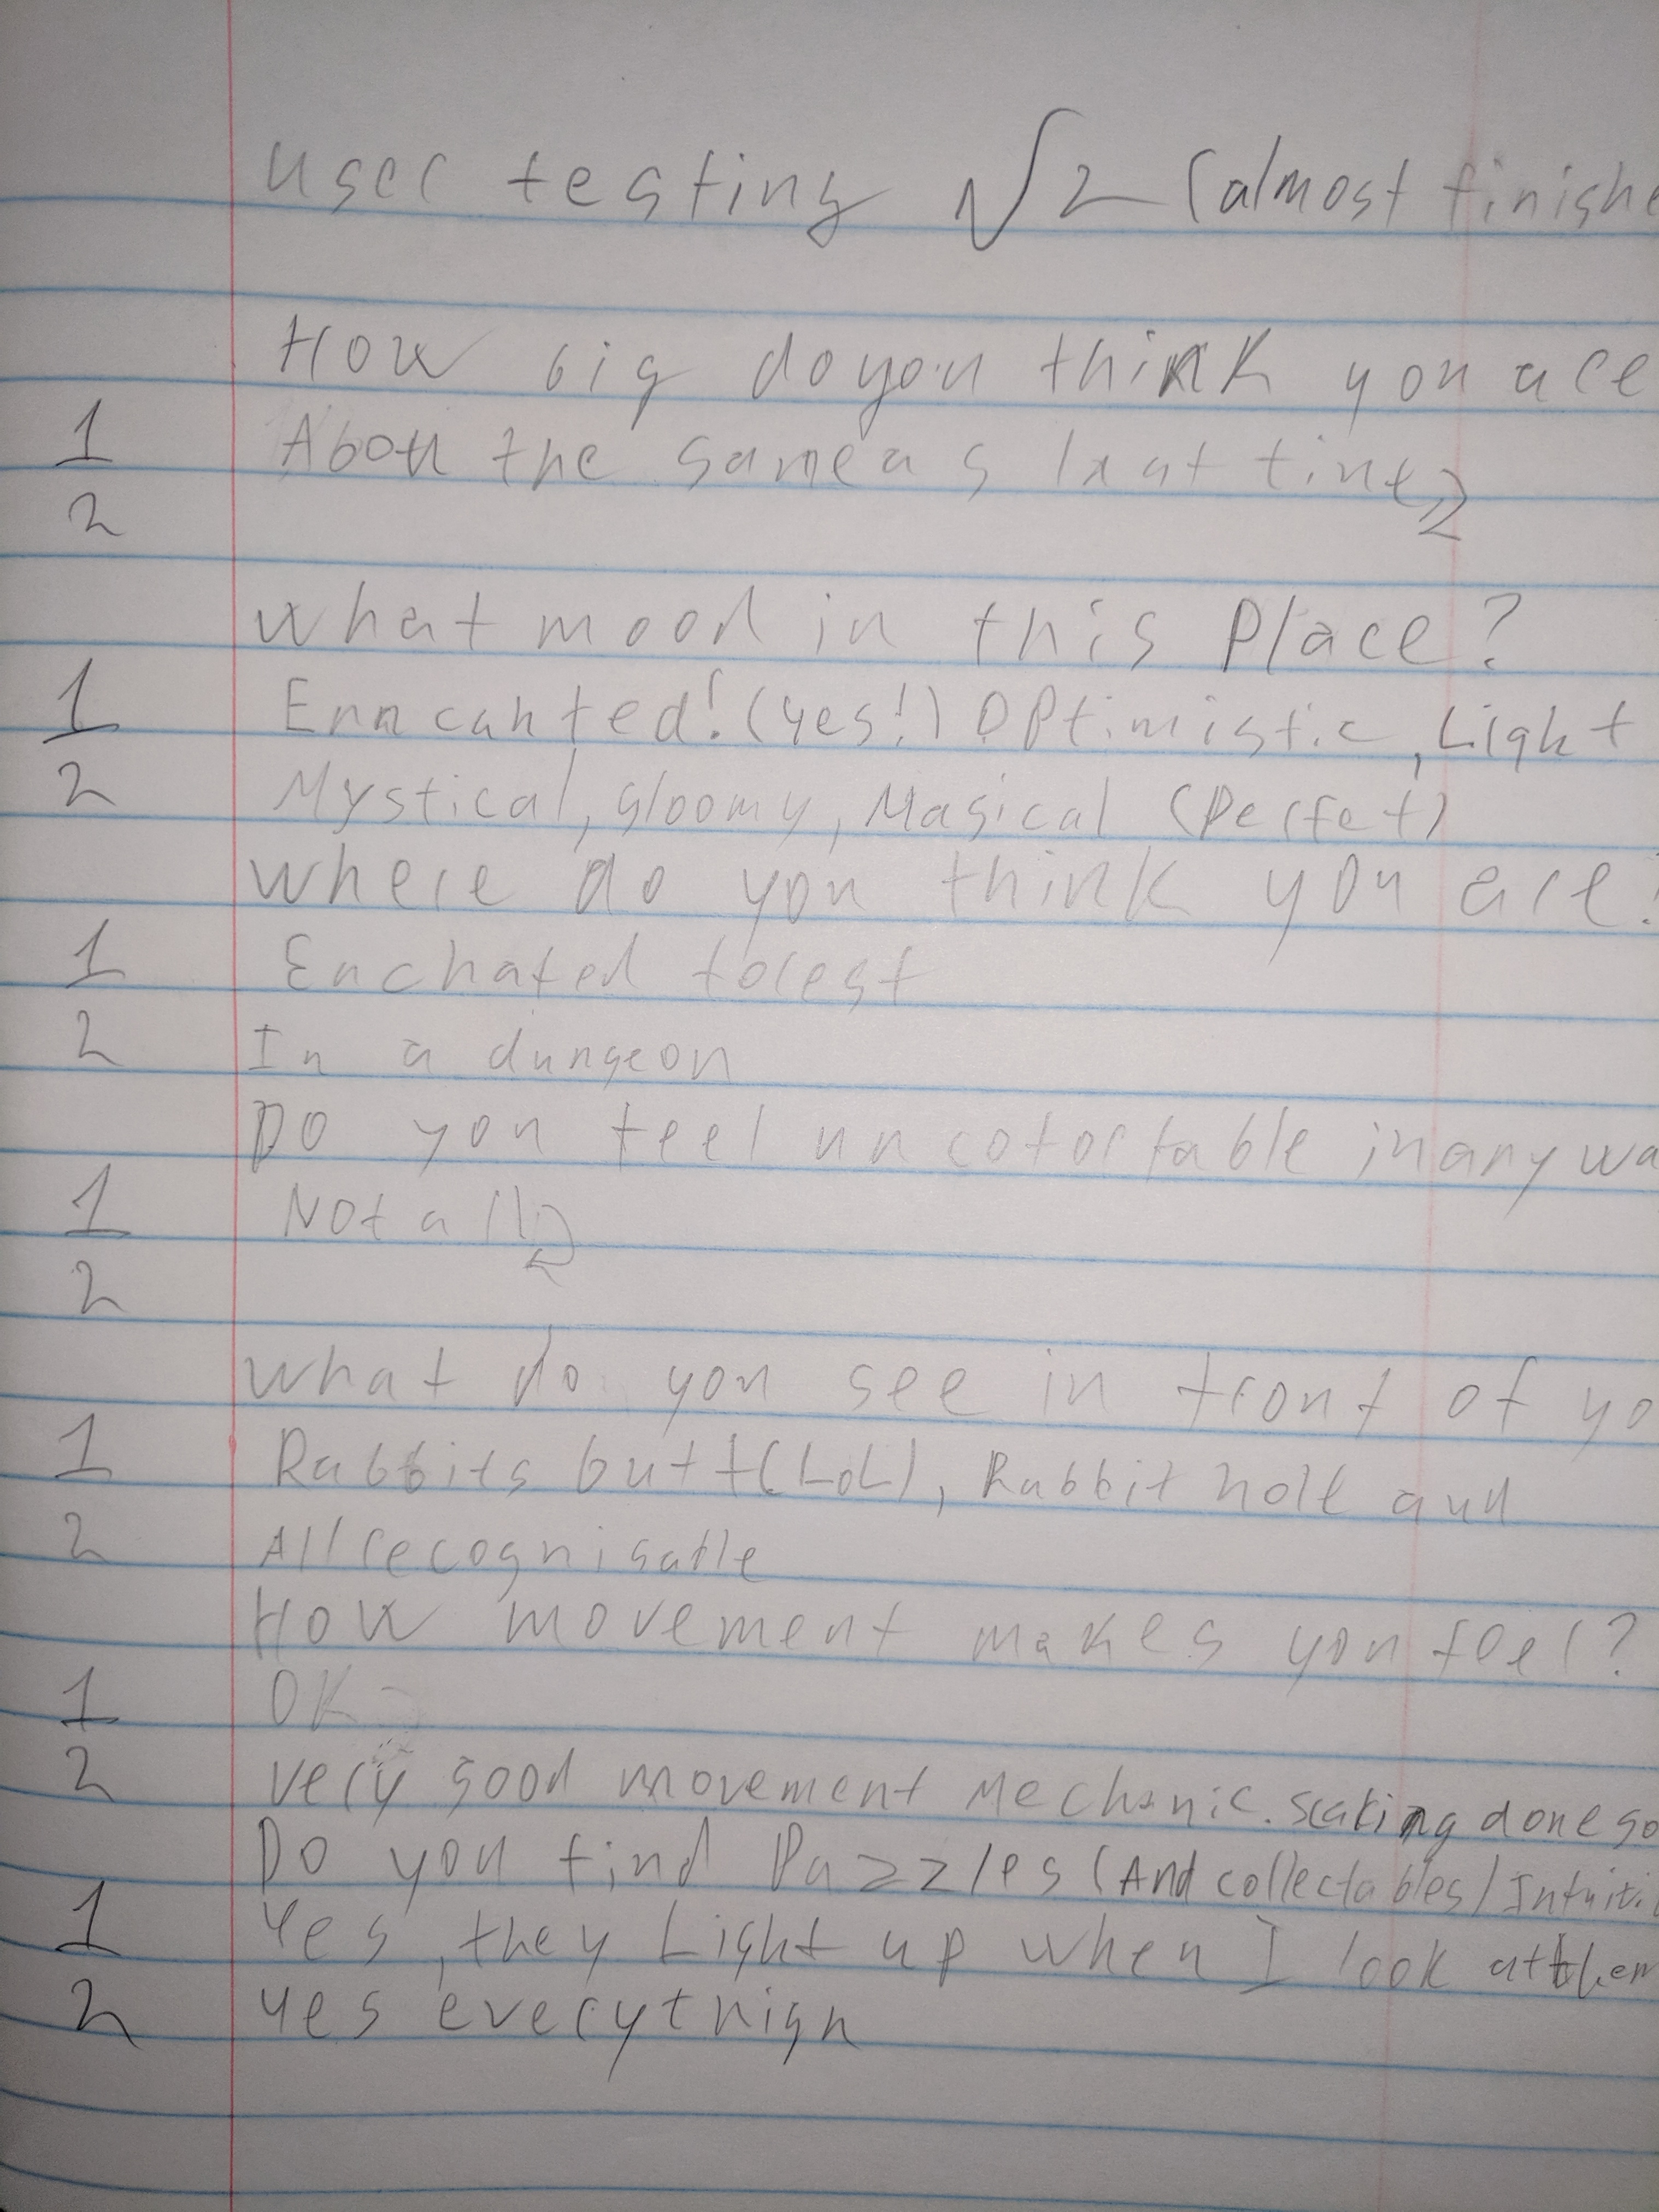 User testing √2 (almost finishe
How big do you think you are
1 Abou the same as last time 2
2
What mood in this place?
1 Enncanted! (yes!) Optimistic, Light
2 Mystical, gloomy, Magical (Perfet)
Where do you think you are?
1 Enchated forest
2 In a dungeon
Do you feel uncofortable in any wa
1 Not all
2
What do you see in front of yo
1 Rabbits butt (LoL), Rabbit hole and
2 All recognisable
How movement makes you feel?
1 OK
2 Very good movement mechanic. Scaling done go
Do you find Puzzles (And collectables) Intuiti
1 Yes, they Light up when I look at them
2 Yes everythign